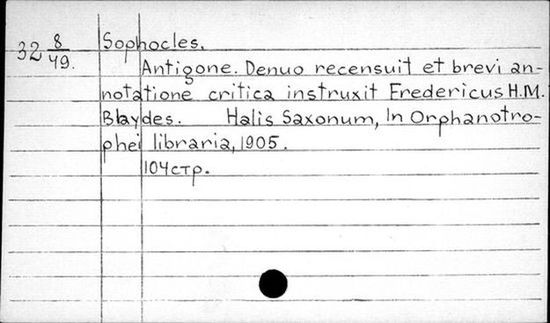 32 8/49.
Sophocles.
Antigone. Denuo recensuit et brevi an-
notatione critica instruxit Fredericus H.M.
Blaydes. Halis Saxonum, In Orphanotro-
phei libraria, 1905.
104стр.